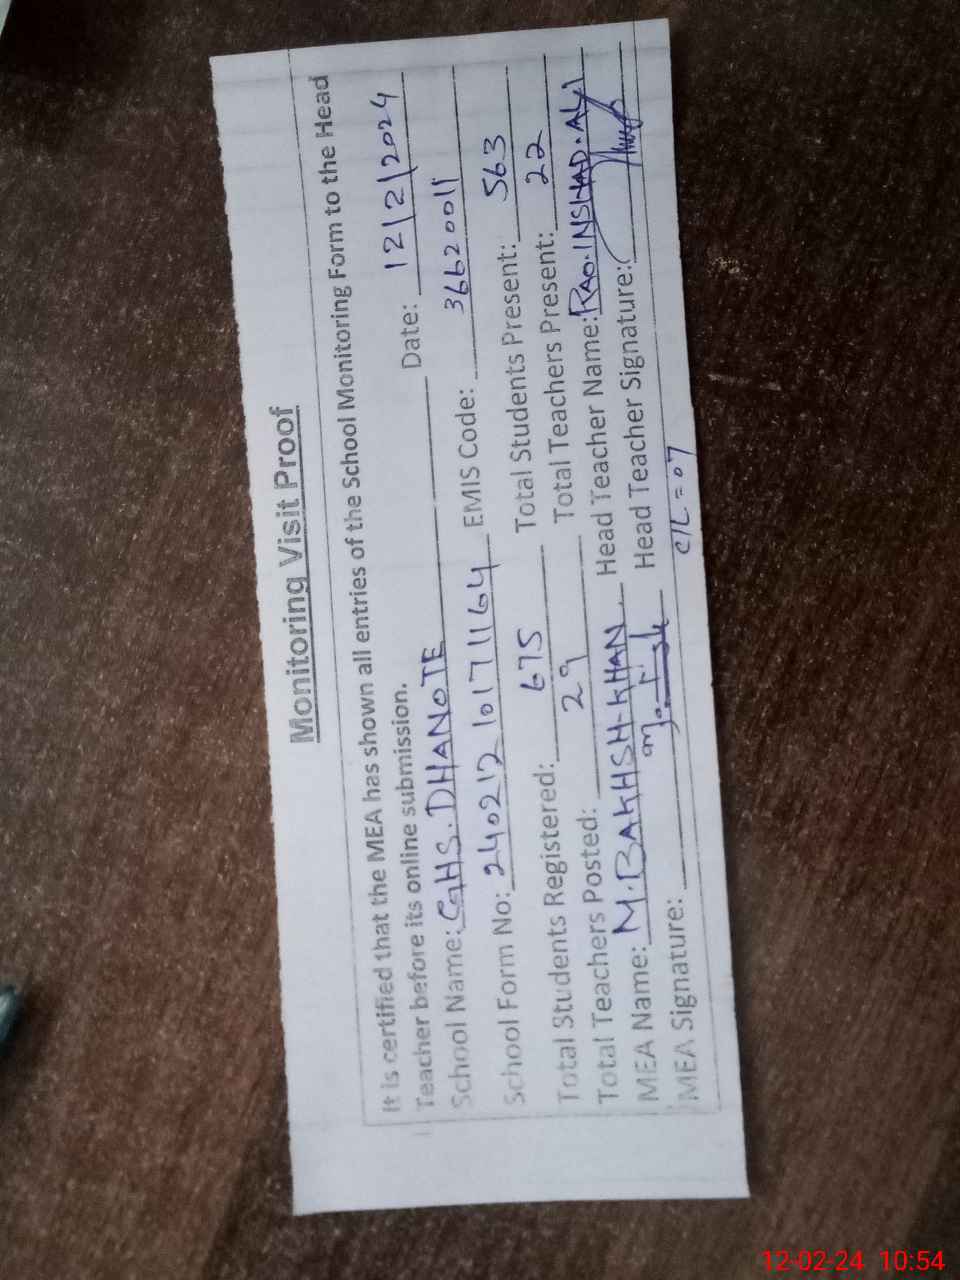 Monitoring Visit Proof
It is certified that the MEA has shown all entries of the School Monitoring Form to the Head
Teacher before its online submission.
School Name: GHS. DHANOTE Date: 12/2/2024
School Form No: 24021210171164 EMIS Code: 36620011
Total Students Registered: 675 Total Students Present: 563
Total Teachers Posted: 29 Total Teachers Present: 22
MEA Name: M. BAKHSH KHAN Head Teacher Name: RAO. INSHAD. ALI
MEA Signature: Head Teacher Signature:
C/L = 07
12-02-24 10:54